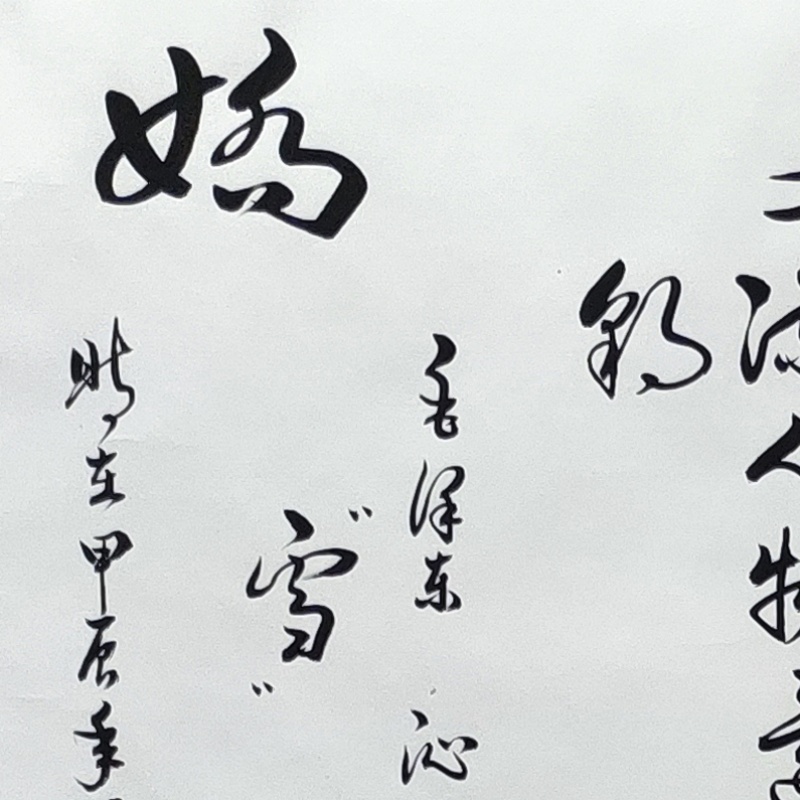 流人物
朝
嬌
毛泽东 沁
“雪”
时在甲辰年